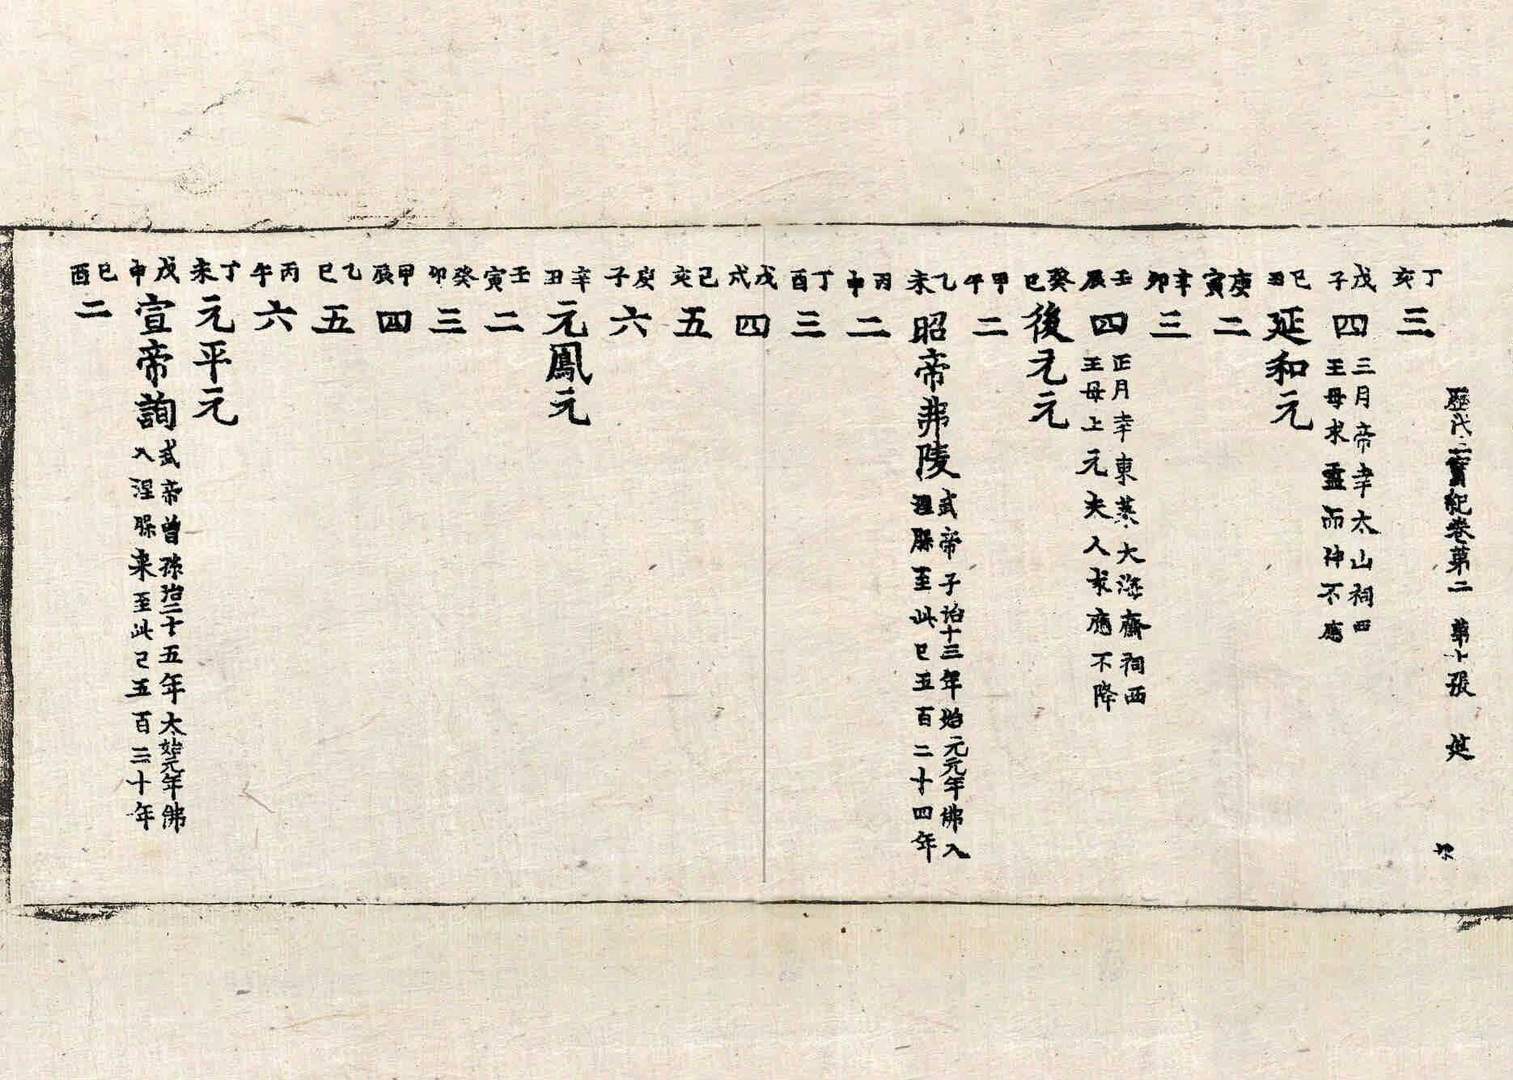 歷代三寶紀卷第二 第十張 筵
丁亥 三
戊子 四 三月帝幸太山祠西王母求靈而神不應
己丑 延和元
庚寅 二
辛卯 三
壬辰 四 正月幸東萊大海齋祠西王母上元夫人求應不降
癸巳 後元元
甲午 二
乙未 昭帝弗陵 武帝子治十三年始元元年佛入涅槃至此已五百二十四年
丙申 二
丁酉 三
戊戌 四
己亥 五
庚子 六
辛丑 元鳳元
壬寅 二
癸卯 三
甲辰 四
乙巳 五
丙午 六
丁未 元平元
戊申 宣帝詢 武帝曾孫治二十五年太始元年佛入涅槃来至此已五百三十年
己酉 二